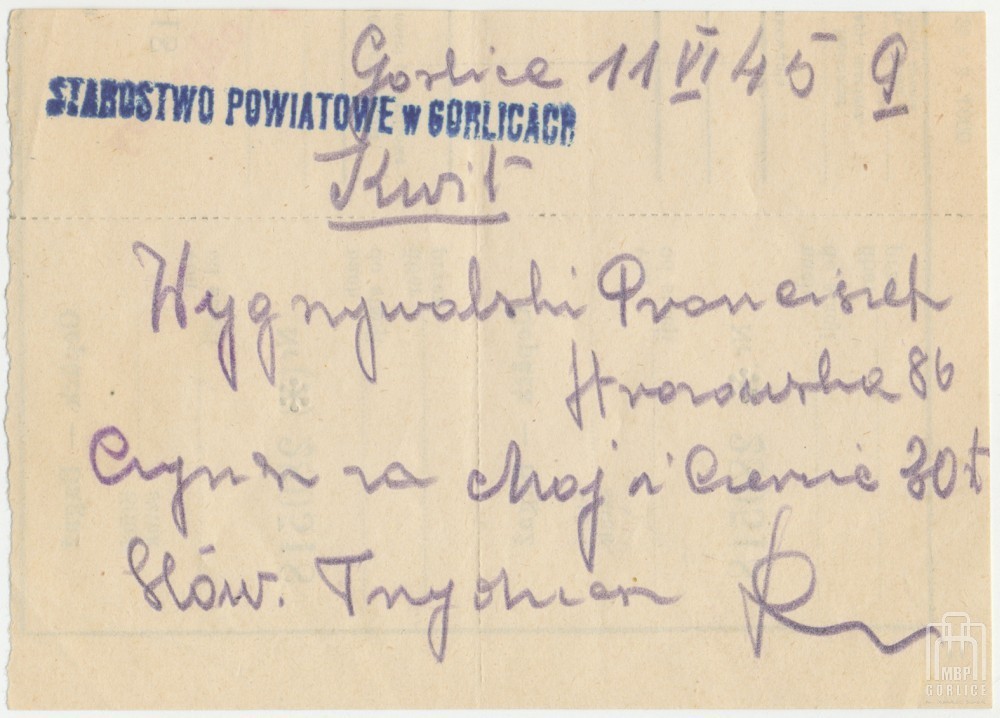 Gorlice 11 VI 45 9
STAROSTWO POWIATOWE w GORLICACH
Kwit
Wygrywalski Franciszek
86
Czynsz za Maj i Czerwiec 30 zł
Słów. Trzydzieści
MBP
GORLICE